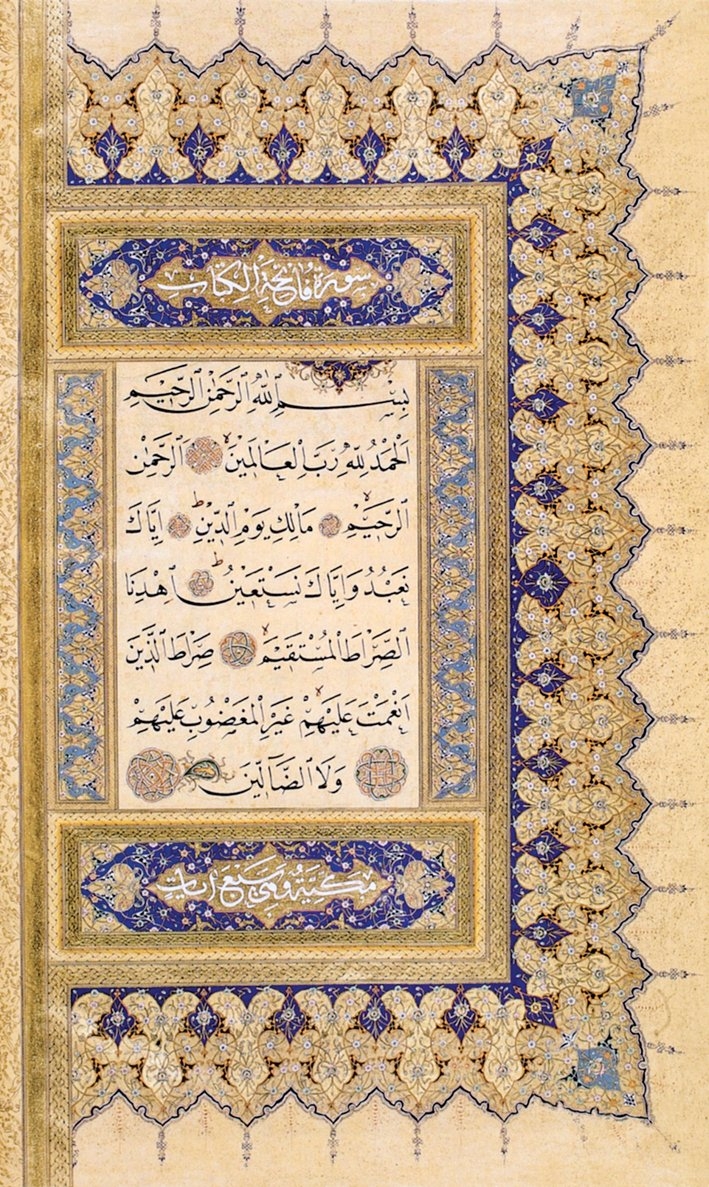 سورة فاتحة الكتاب
بِسْمِ ٱللّٰهِ ٱلرَّحْمٰنِ ٱلرَّحِيمِ
اَلْحَمْدُ لِلّٰهِ رَبِّ الْعَالَمِينَۙ اَلرَّحْمٰنِ
الرَّحِيمِۙ مَالِكِ يَوْمِ الدِّينِۜ اِيَّاكَ
نَعْبُدُ وَاِيَّاكَ نَسْتَعِينُۜ اِهْدِنَا
الصِّرَاطَ الْمُسْتَقِيمَۙ صِرَاطَ الَّذِينَ
اَنْعَمْتَ عَلَيْهِمْۙ غَيْرِ الْمَغْضُوبِ عَلَيْهِمْ
وَلَا الضَّٓالِّينَ
مكية وهي سبع آيات